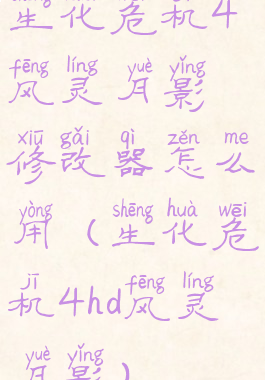 生化危机4
fēng líng yuè yǐng
风灵月影
xiū gǎi qì zěn me
修改器怎么
yòng shēng huà wēi
用（生化危
jī fēng líng
机4hd风灵
yuè yǐng
月影）